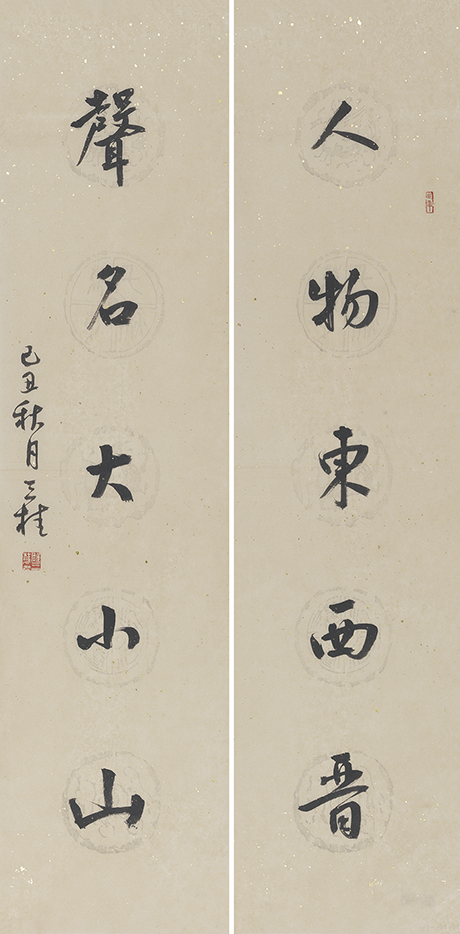 人物東西晋
聲名大小山
己丑秋月三桂